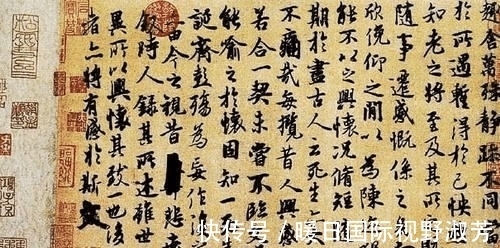 趣舍萬殊靜躁不同
於所遇蹔得於己快
知老之將至及其所
隨事遷感慨係之
欣俛仰之閒以為陳
能不以之興懷況脩短
期於盡古人云死生
不痛哉每攬昔人興感
若合一契未嘗不臨
能喻之於懷固知一死
誕齊彭殤為妄作
由今之視昔悲
敘時人錄其所述雖世
異所以興懷其致一也後
者亦將有感於斯文
快传号/暖日国际视野淑芳